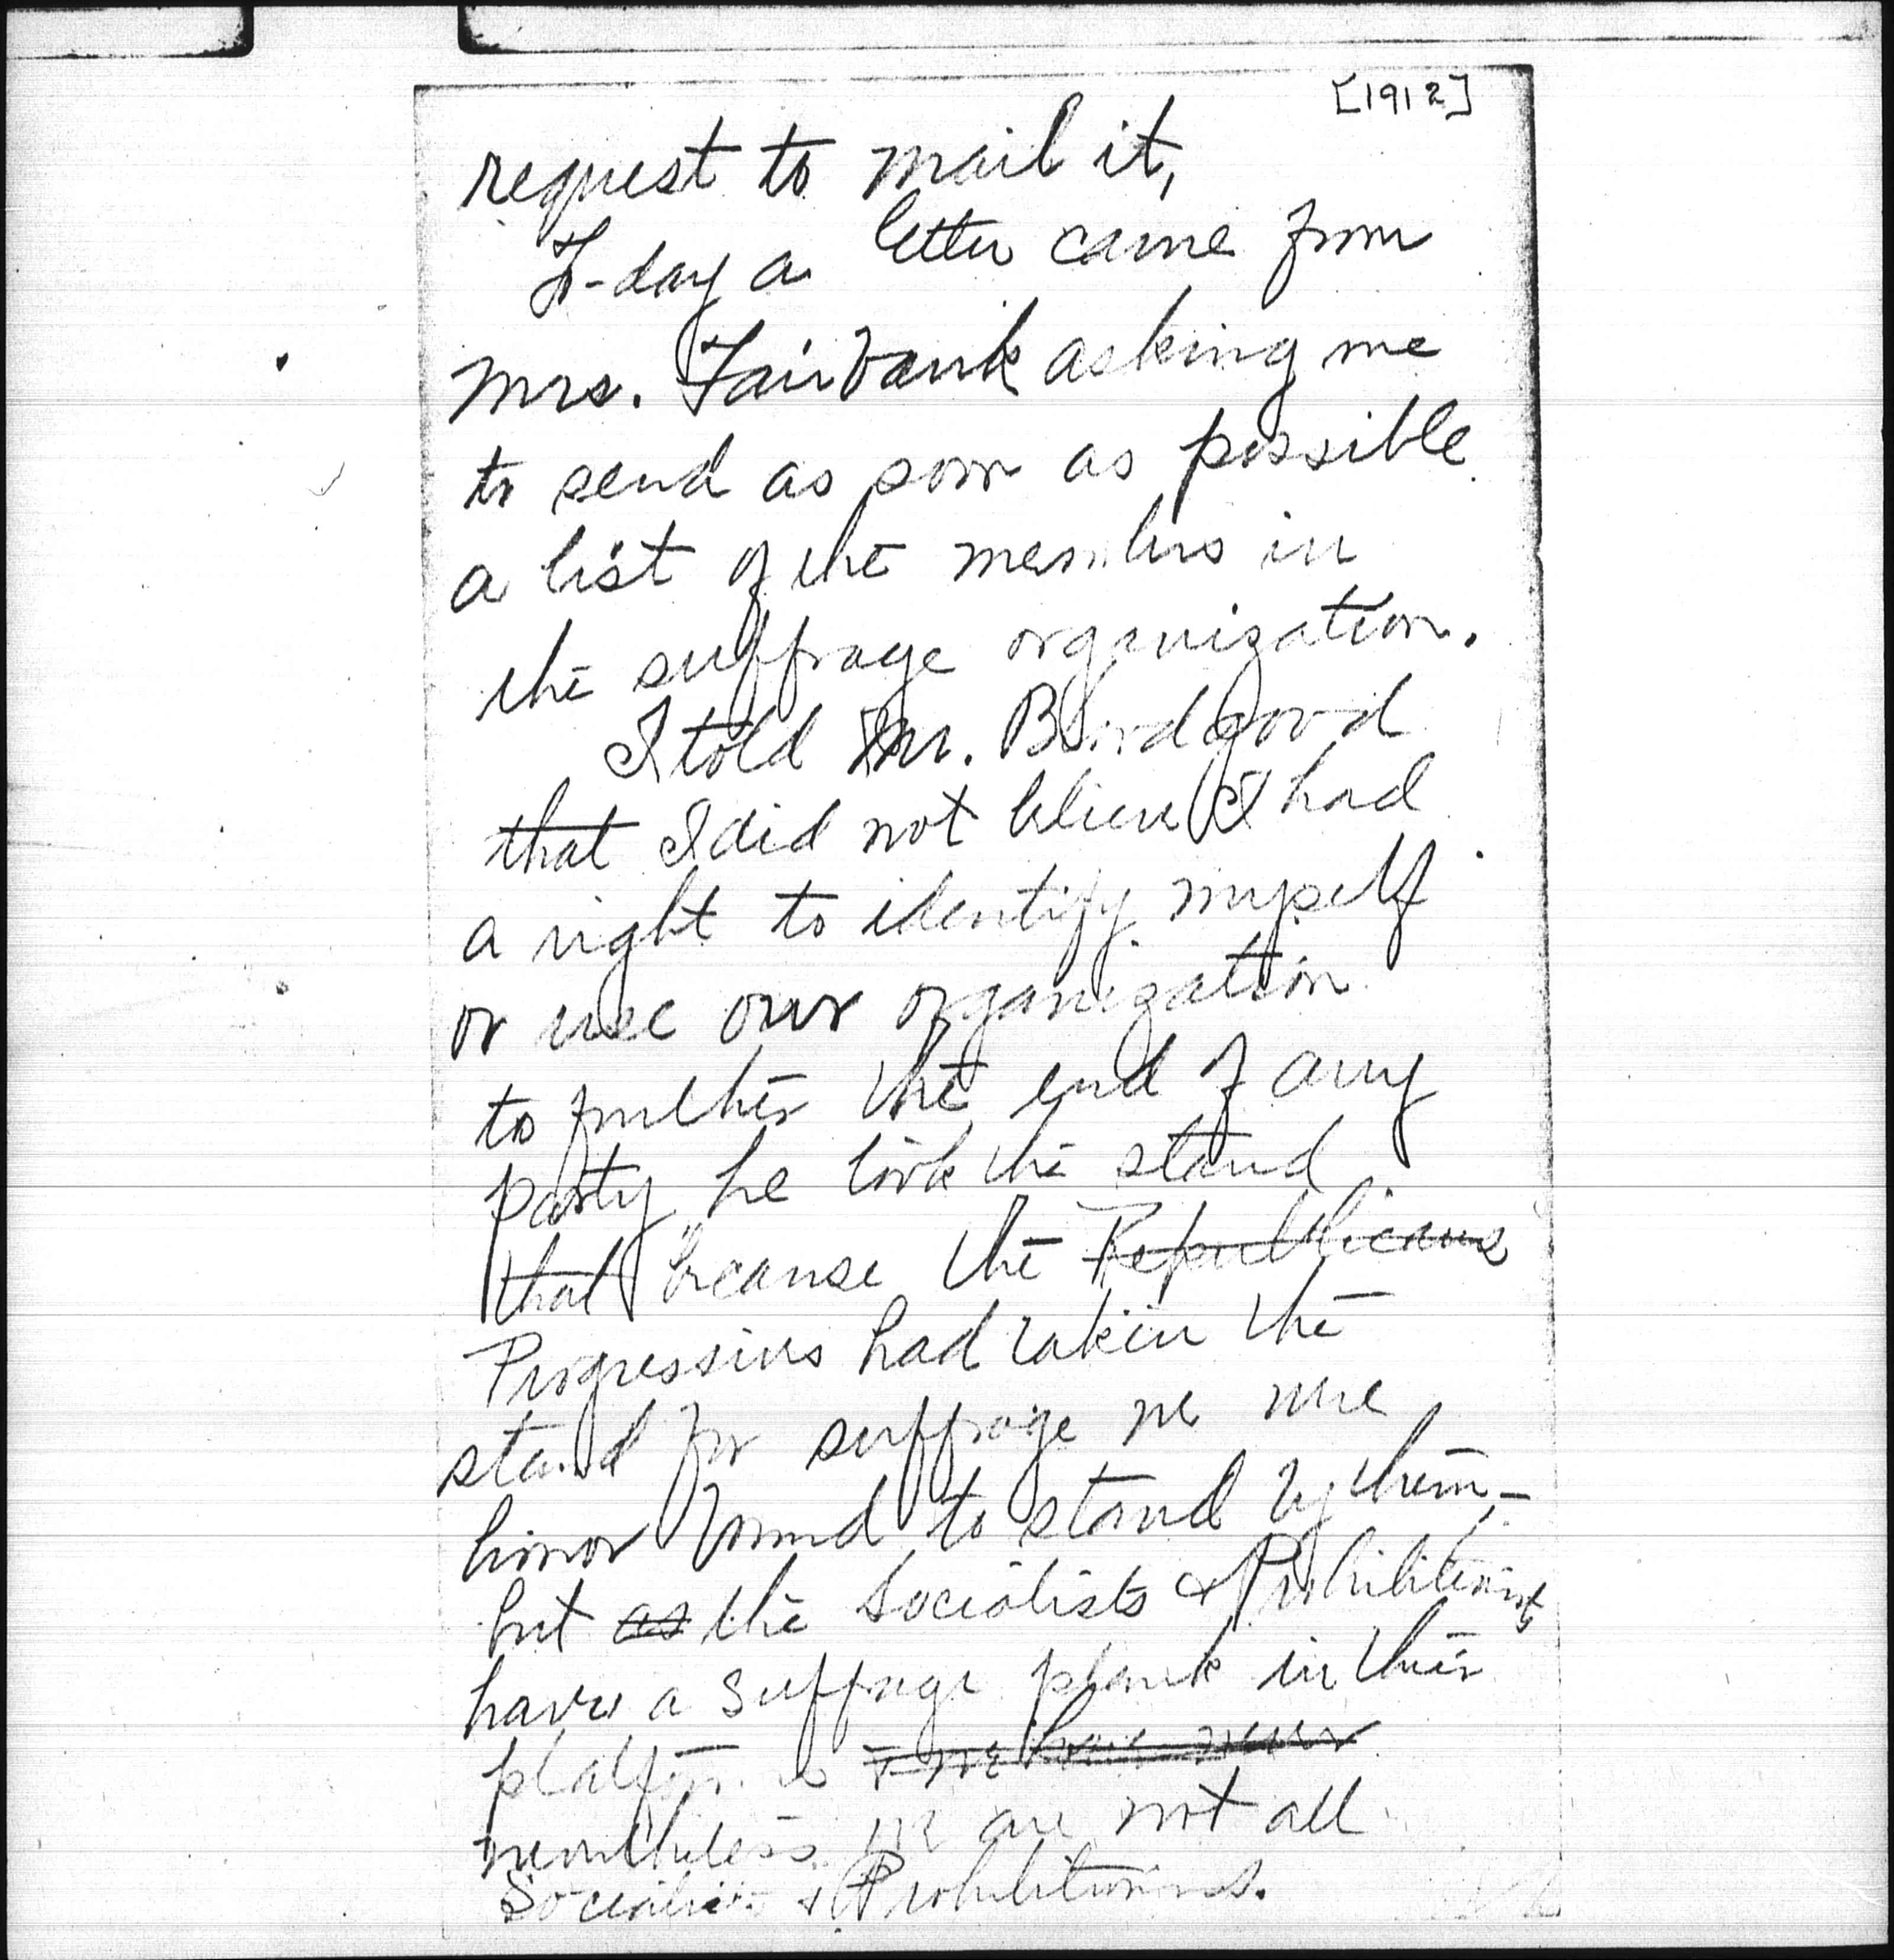 [1912]
request to mail it,
To-day a letter came from
Mrs. Fairbank asking me
to send as soon as possible
a list of the members in
the suffrage organization.
I told Mr. Bloodgood
that I did not believe I had
a right to identify myself
or use our organization
to further the end of any
party he took the stand
that because the Republicans
Progressives had taken the
stand for suffrage we were
honor bound to stand by them –
but as the Socialists & Prohibitionists
have a suffrage plank in their
platforms & we have never
nevertheless we are not all
Socialists & Prohibitionists.